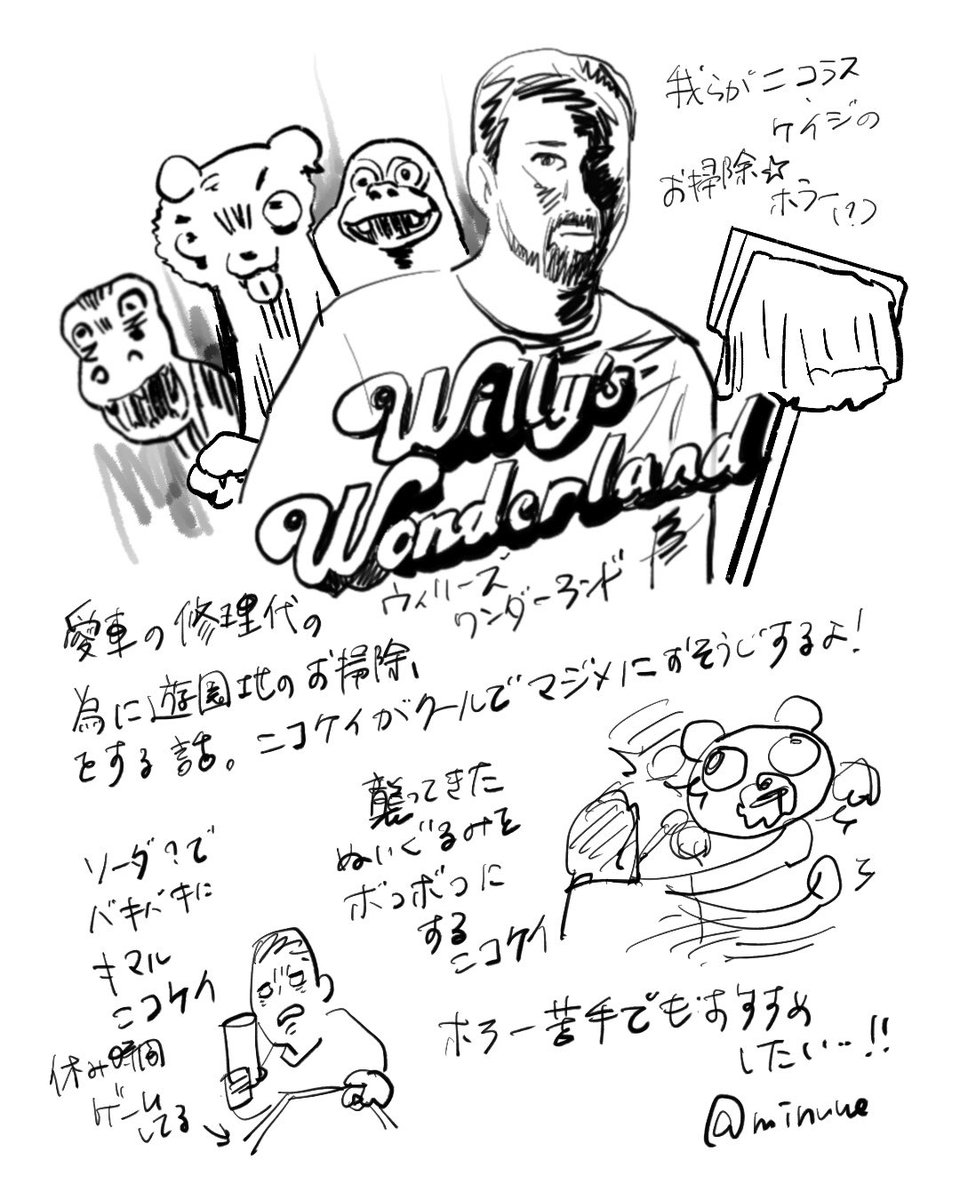 我らがニコラス
・ケイジの
お掃除☆
ホラー(?)
Willy's
Wonderland
ウィリーズ
ワンダーランド
愛車の修理代の
為に遊園地のお掃除、
をする話。ニコケイがクールでマジメにおそうじするよ!
襲ってきた
ぬいぐるみを
ボコボコに
する
ニコケイ
ソーダ?で
バキバキに
キマル
ニコケイ
休み時間
ゲーム
してる
ホラー苦手でもおすすめ
したい…!!
@minuue